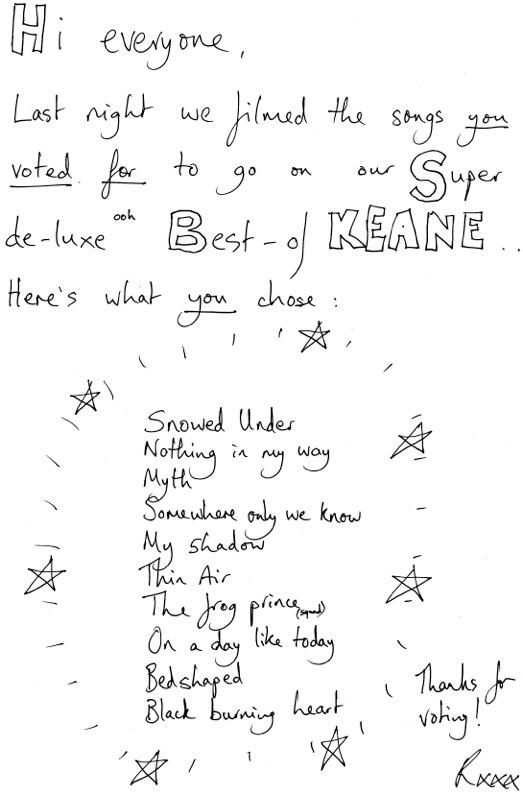 Hi everyone,
Last night we filmed the songs you
voted for to go on our Super
de-luxe ooh Best-of KEANE ..
Here's what you chose :
Snowed Under
Nothing in my way
Myth
Somewhere only we know
My shadow
Thin Air
The frog prince (squad)
On a day like today
Bedshaped
Black burning heart
Thanks for
voting!
Rxxx